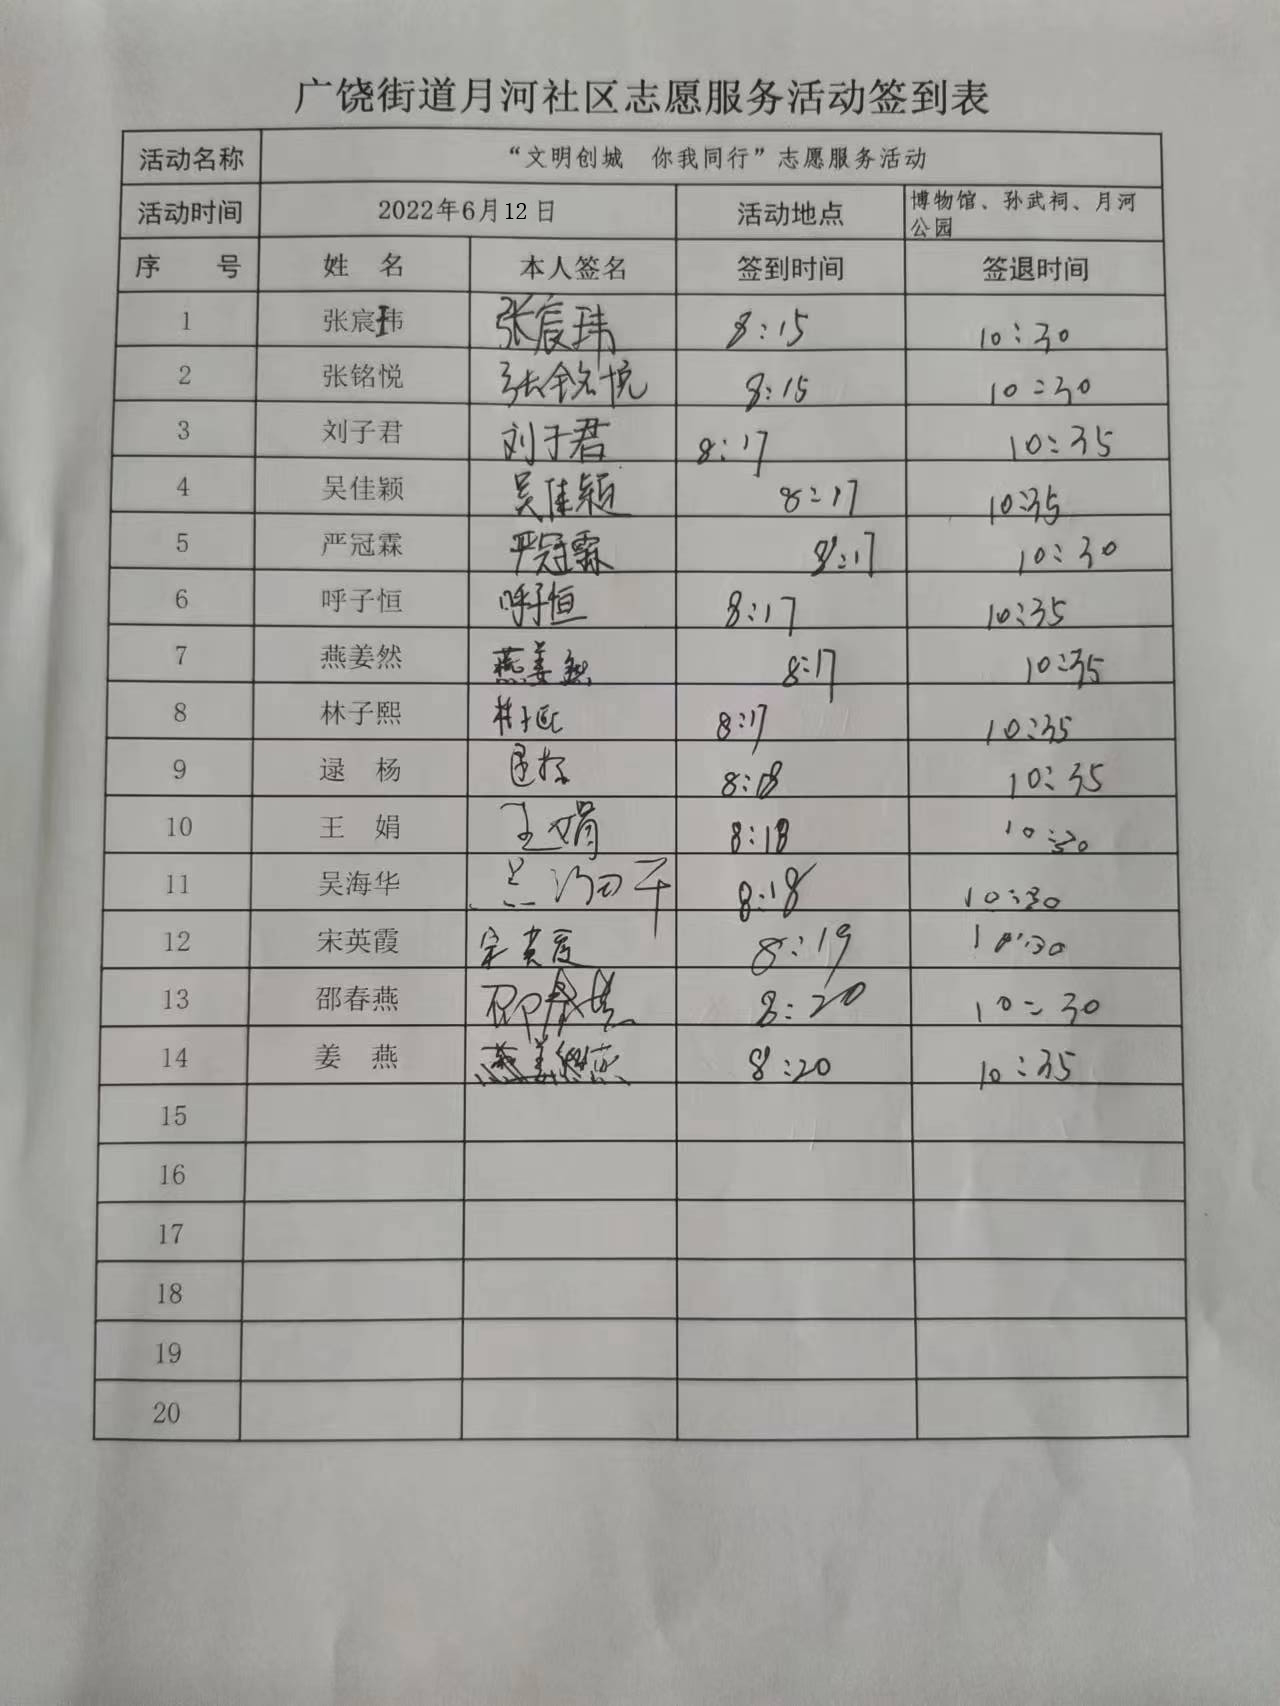 广饶街道月河社区志愿服务活动签到表
活动名称 “文明创城 你我同行”志愿服务活动
活动时间 2022年6月12日 活动地点 博物馆、孙武祠、月河
公园
序 号 姓 名 本人签名 签到时间 签退时间
1 张宸玮 张宸玮 8:15 10:30
2 张铭悦 张铭悦 8:15 10:30
3 刘子君 刘子君 8:17 10:35
4 吴佳颖 吴佳颖 8:17 10:35
5 严冠霖 严冠霖 8:17 10:30
6 呼子恒 呼子恒 8:17 10:35
7 燕姜然 燕姜然 8:17 10:35
8 林子熙 林子熙 8:17 10:35
9 逯 杨 逯杨 8:18 10:35
10 王 娟 王娟 8:18 10:30
11 吴海华 8:18 10:30
12 宋英霞 宋英霞 8:19 10:30
13 邵春燕 邵春燕 8:20 10:30
14 姜 燕 8:20 10:35
15
16
17
18
19
20